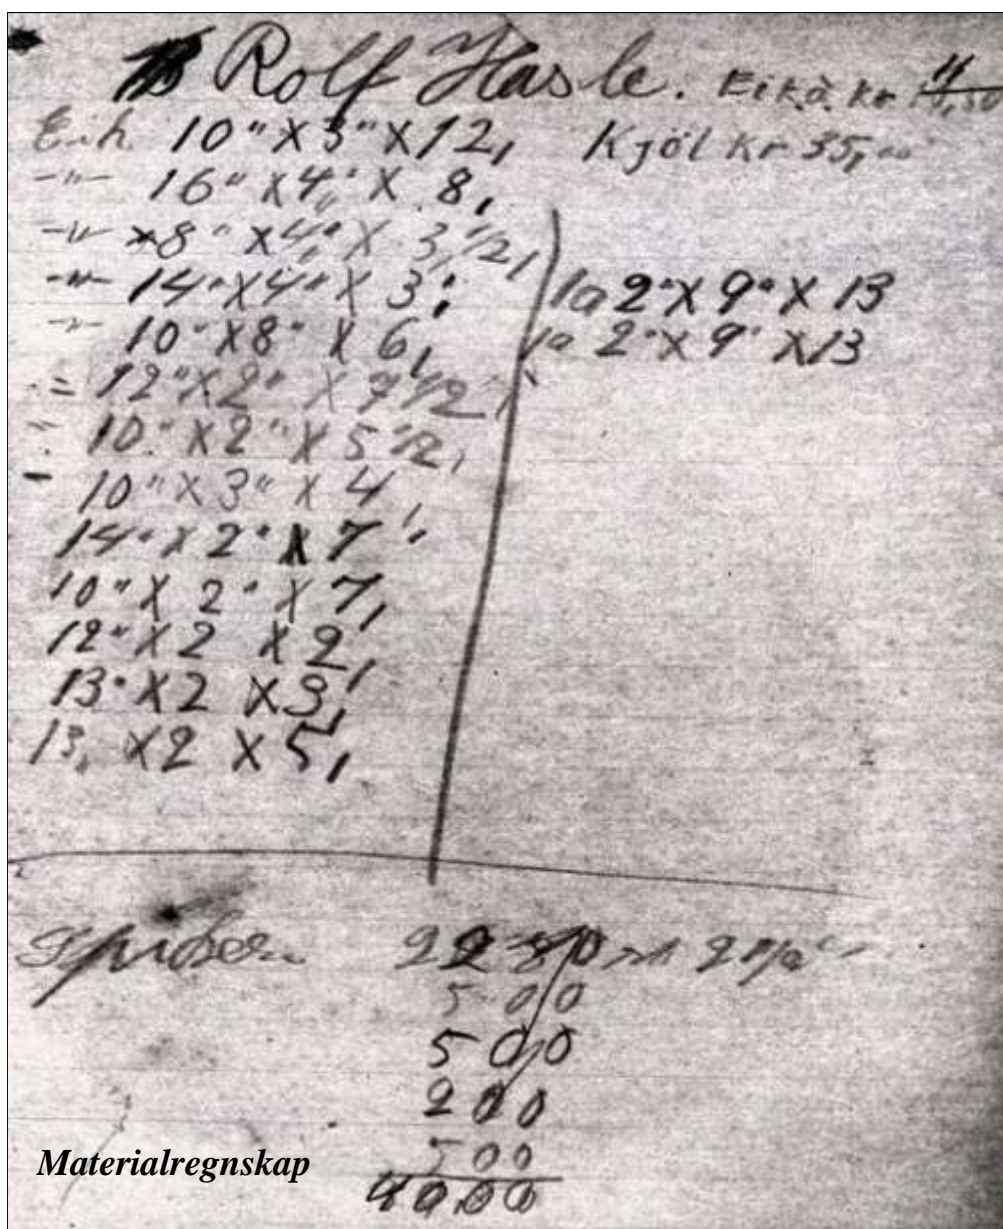 Rolf Hasle. Eik a. kr
Eik 10" X 3" X 12, Kjöl kr 35,00
-"- 16" X 4" X 8,
-"- 8" X 4" X 3 1/2,
-"- 14" X 4" X 3,
-"- 10" X 8" X 6,
= 12" X 2" X 7 1/2,
- 10" X 2" X 5 1/2,
- 10" X 3" X 4
14" X 2" X 7',
10" X 2" X 7,
12" X 2 X 2,
13" X 2 X 3,
13, X 2 X 5,
1a 2" X 9" X 13
1a 2" X 9" X 13
2280
500
500
200
500
4000
Materialregnskap